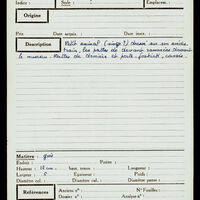 Indice : Salle : Emplacem. :
Origine
Prix Date acquis. : Date inv. :
Description Petit animal (singe ?) dressé sur son socle.
train, les pattes de devant ramenées devant
le museau. Pattes de derrière et
Matière : grès
Enduit : Patine :
Hauteur : cm. haut. tenon : Longueur :
Largeur : Epaisseur : Poids :
Diamètre col. : Diamètre panse :
Références Ancien n° : N° Fouilles :
Dossier n° : Analyse n° :